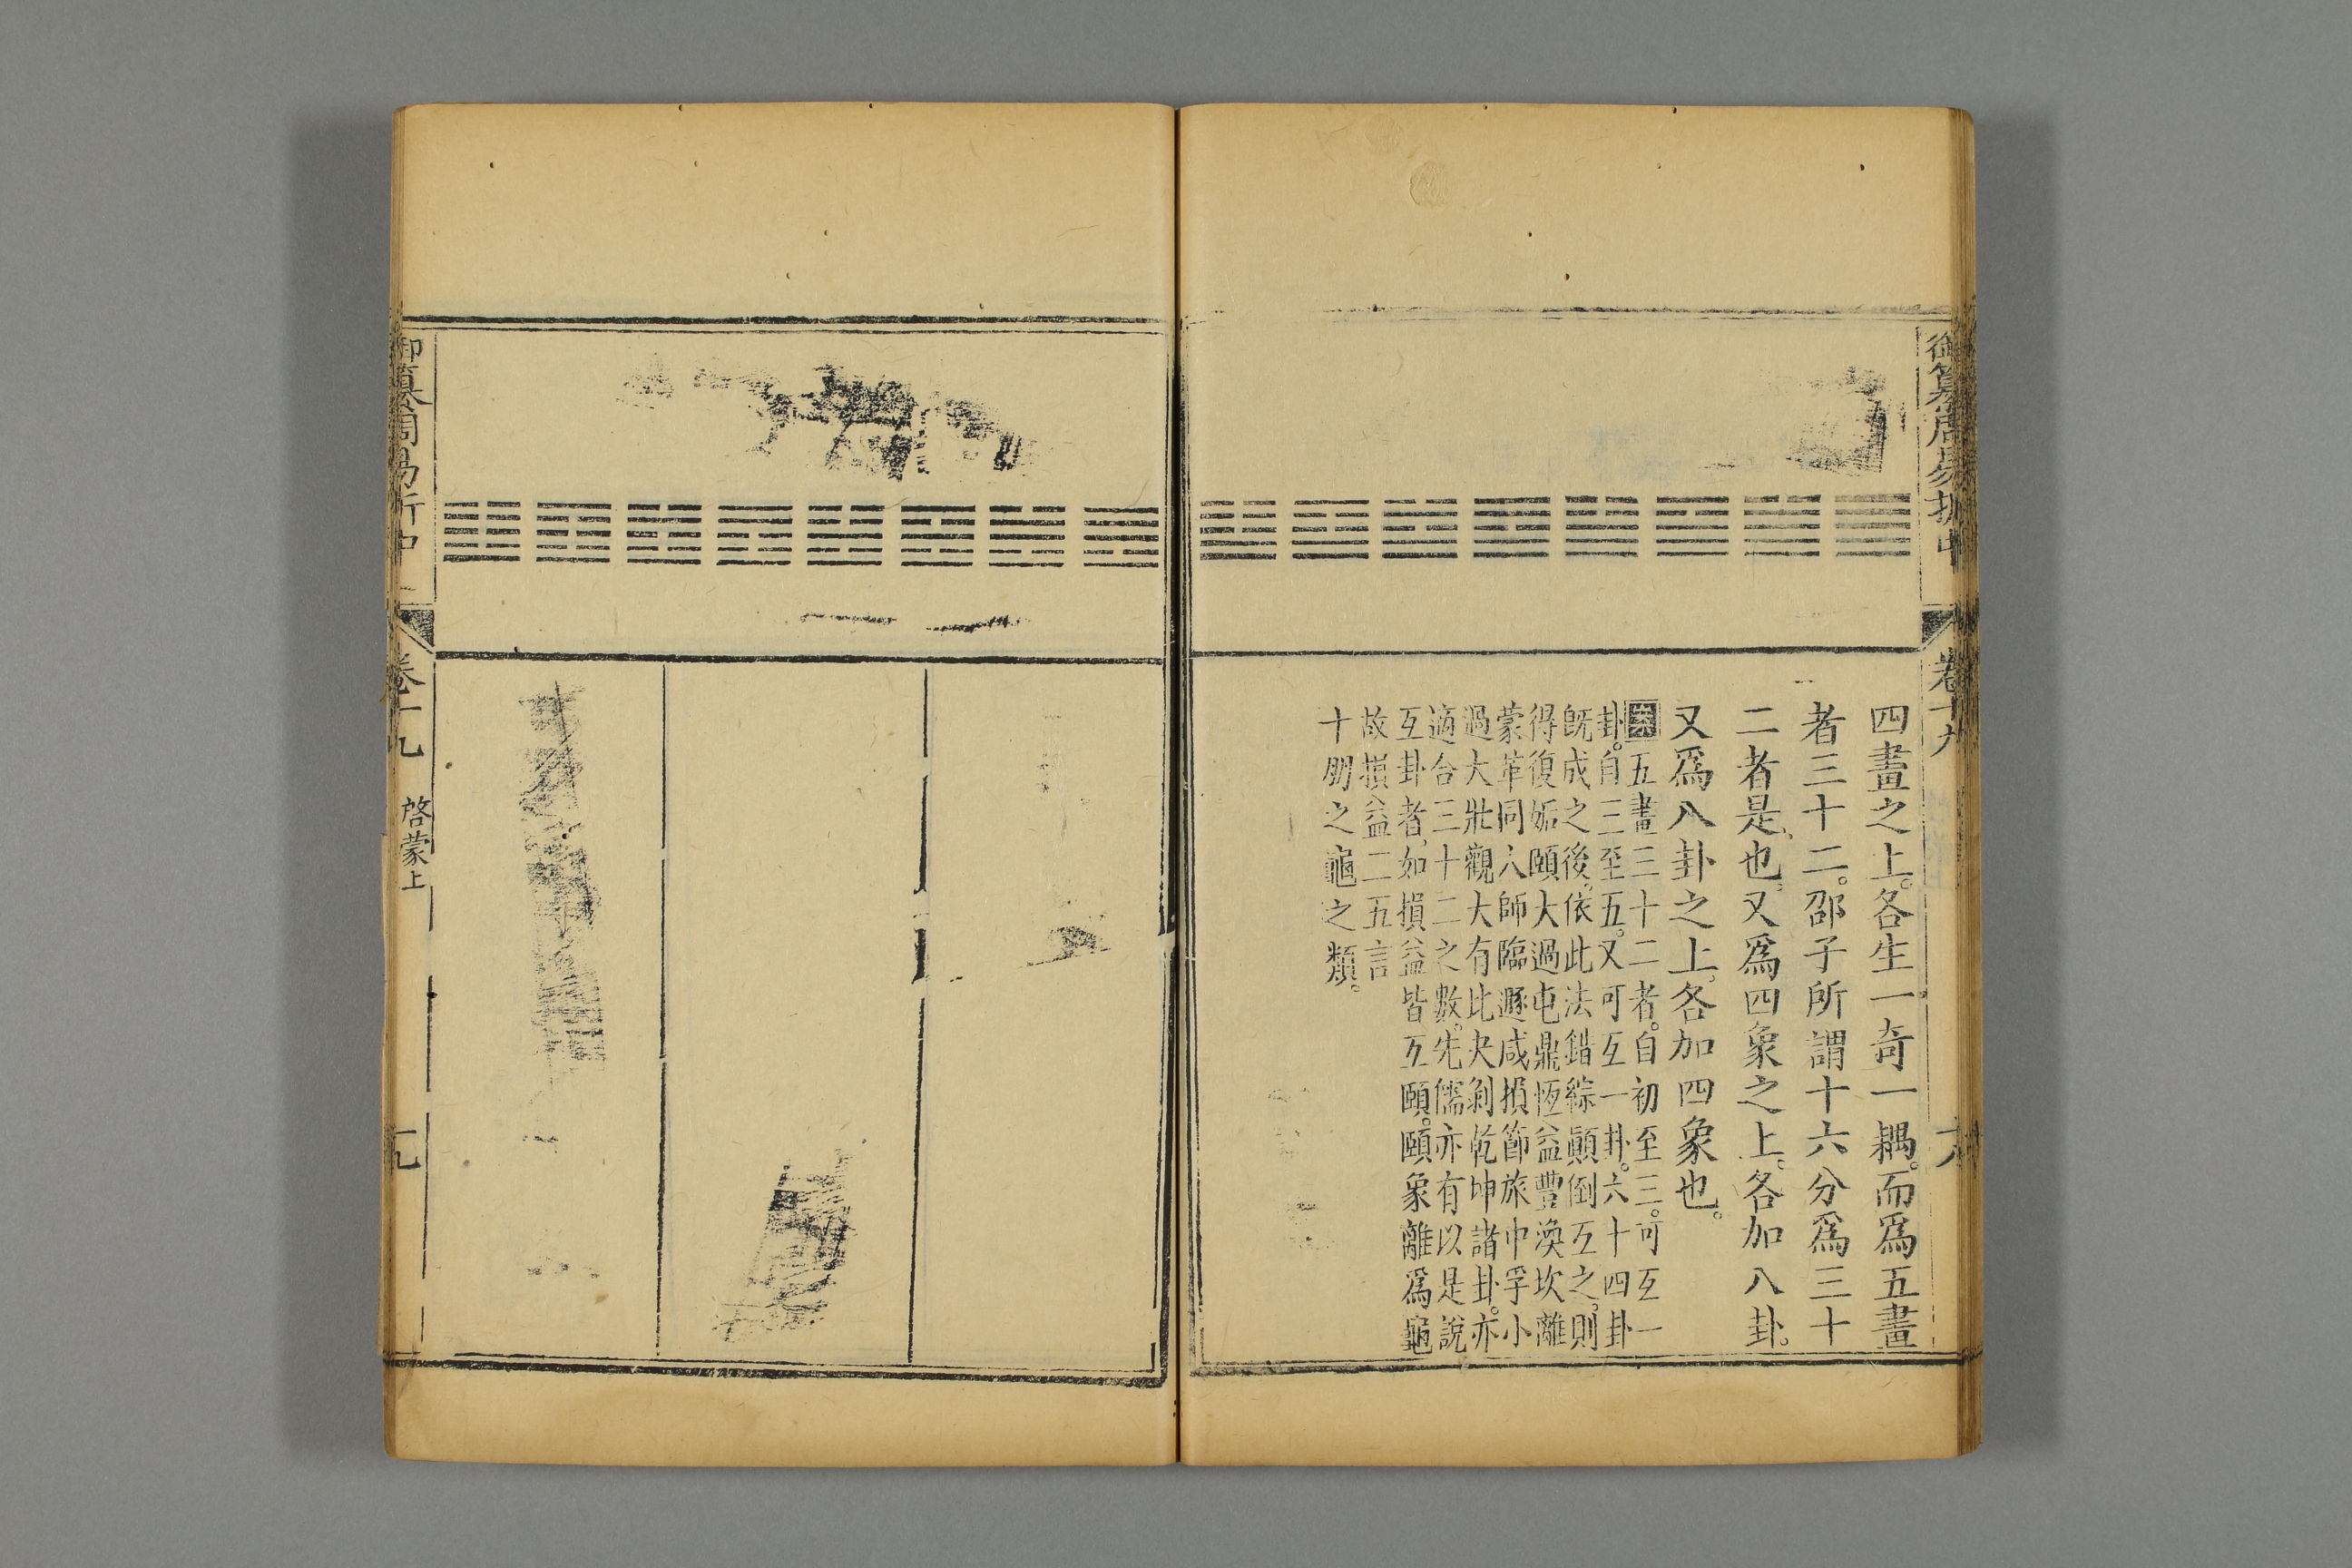 御纂周易折中
卷十九
四畫之上。各生一奇一耦。而爲五畫
者三十二。邵子所謂十六分爲三十
二者是也。又爲四象之上。各加八卦。
又爲八卦之上。各加四象也。
五畫三十二者。自初至三。可互一
卦。自三至五。又可互一卦。六十四卦
旣成之後。依此法錯綜顚倒互之。則
得復姤頤大過屯鼎恆益豐渙坎離
蒙革同人師臨遯咸損節旅中孚小
過大壯觀大有比夬剝乾坤諸卦。亦
適合三十二之數。先儒亦有以是說
互卦者。如損益皆互頤。頤象離爲龜
故損益二五言
十朋之龜之類。
御纂周易折中
卷十九
啓蒙上